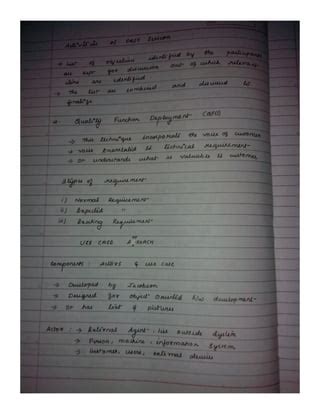 Activities of FAST Session
→ List of objectives identified by the participants
are set for discussion out of which relevant
items are identified
→ The list are combined and discussed to
finalize
Quality Function Deployment (QFD)
→ This technique incorporates the voice of customer
→ voice translated to technical requirement
→ It understands what is valuable to customer
3 types of requirement
i) Normal Requirement
ii) Expected "
iii) Exciting Requirement
USE CASE APPROACH
Components : Actors & use case
→ Developed by Jacobson
→ Designed for object Oriented s/w development
→ It has text & pictures
Actor : → External Agent : lies outside system
→ Person, machine, information System
→ Customer, users, external devices